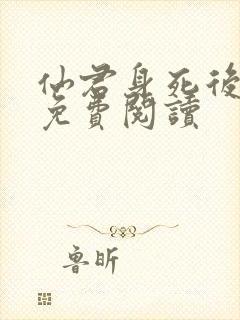 仙君身死後
免費閱讀
魯昕